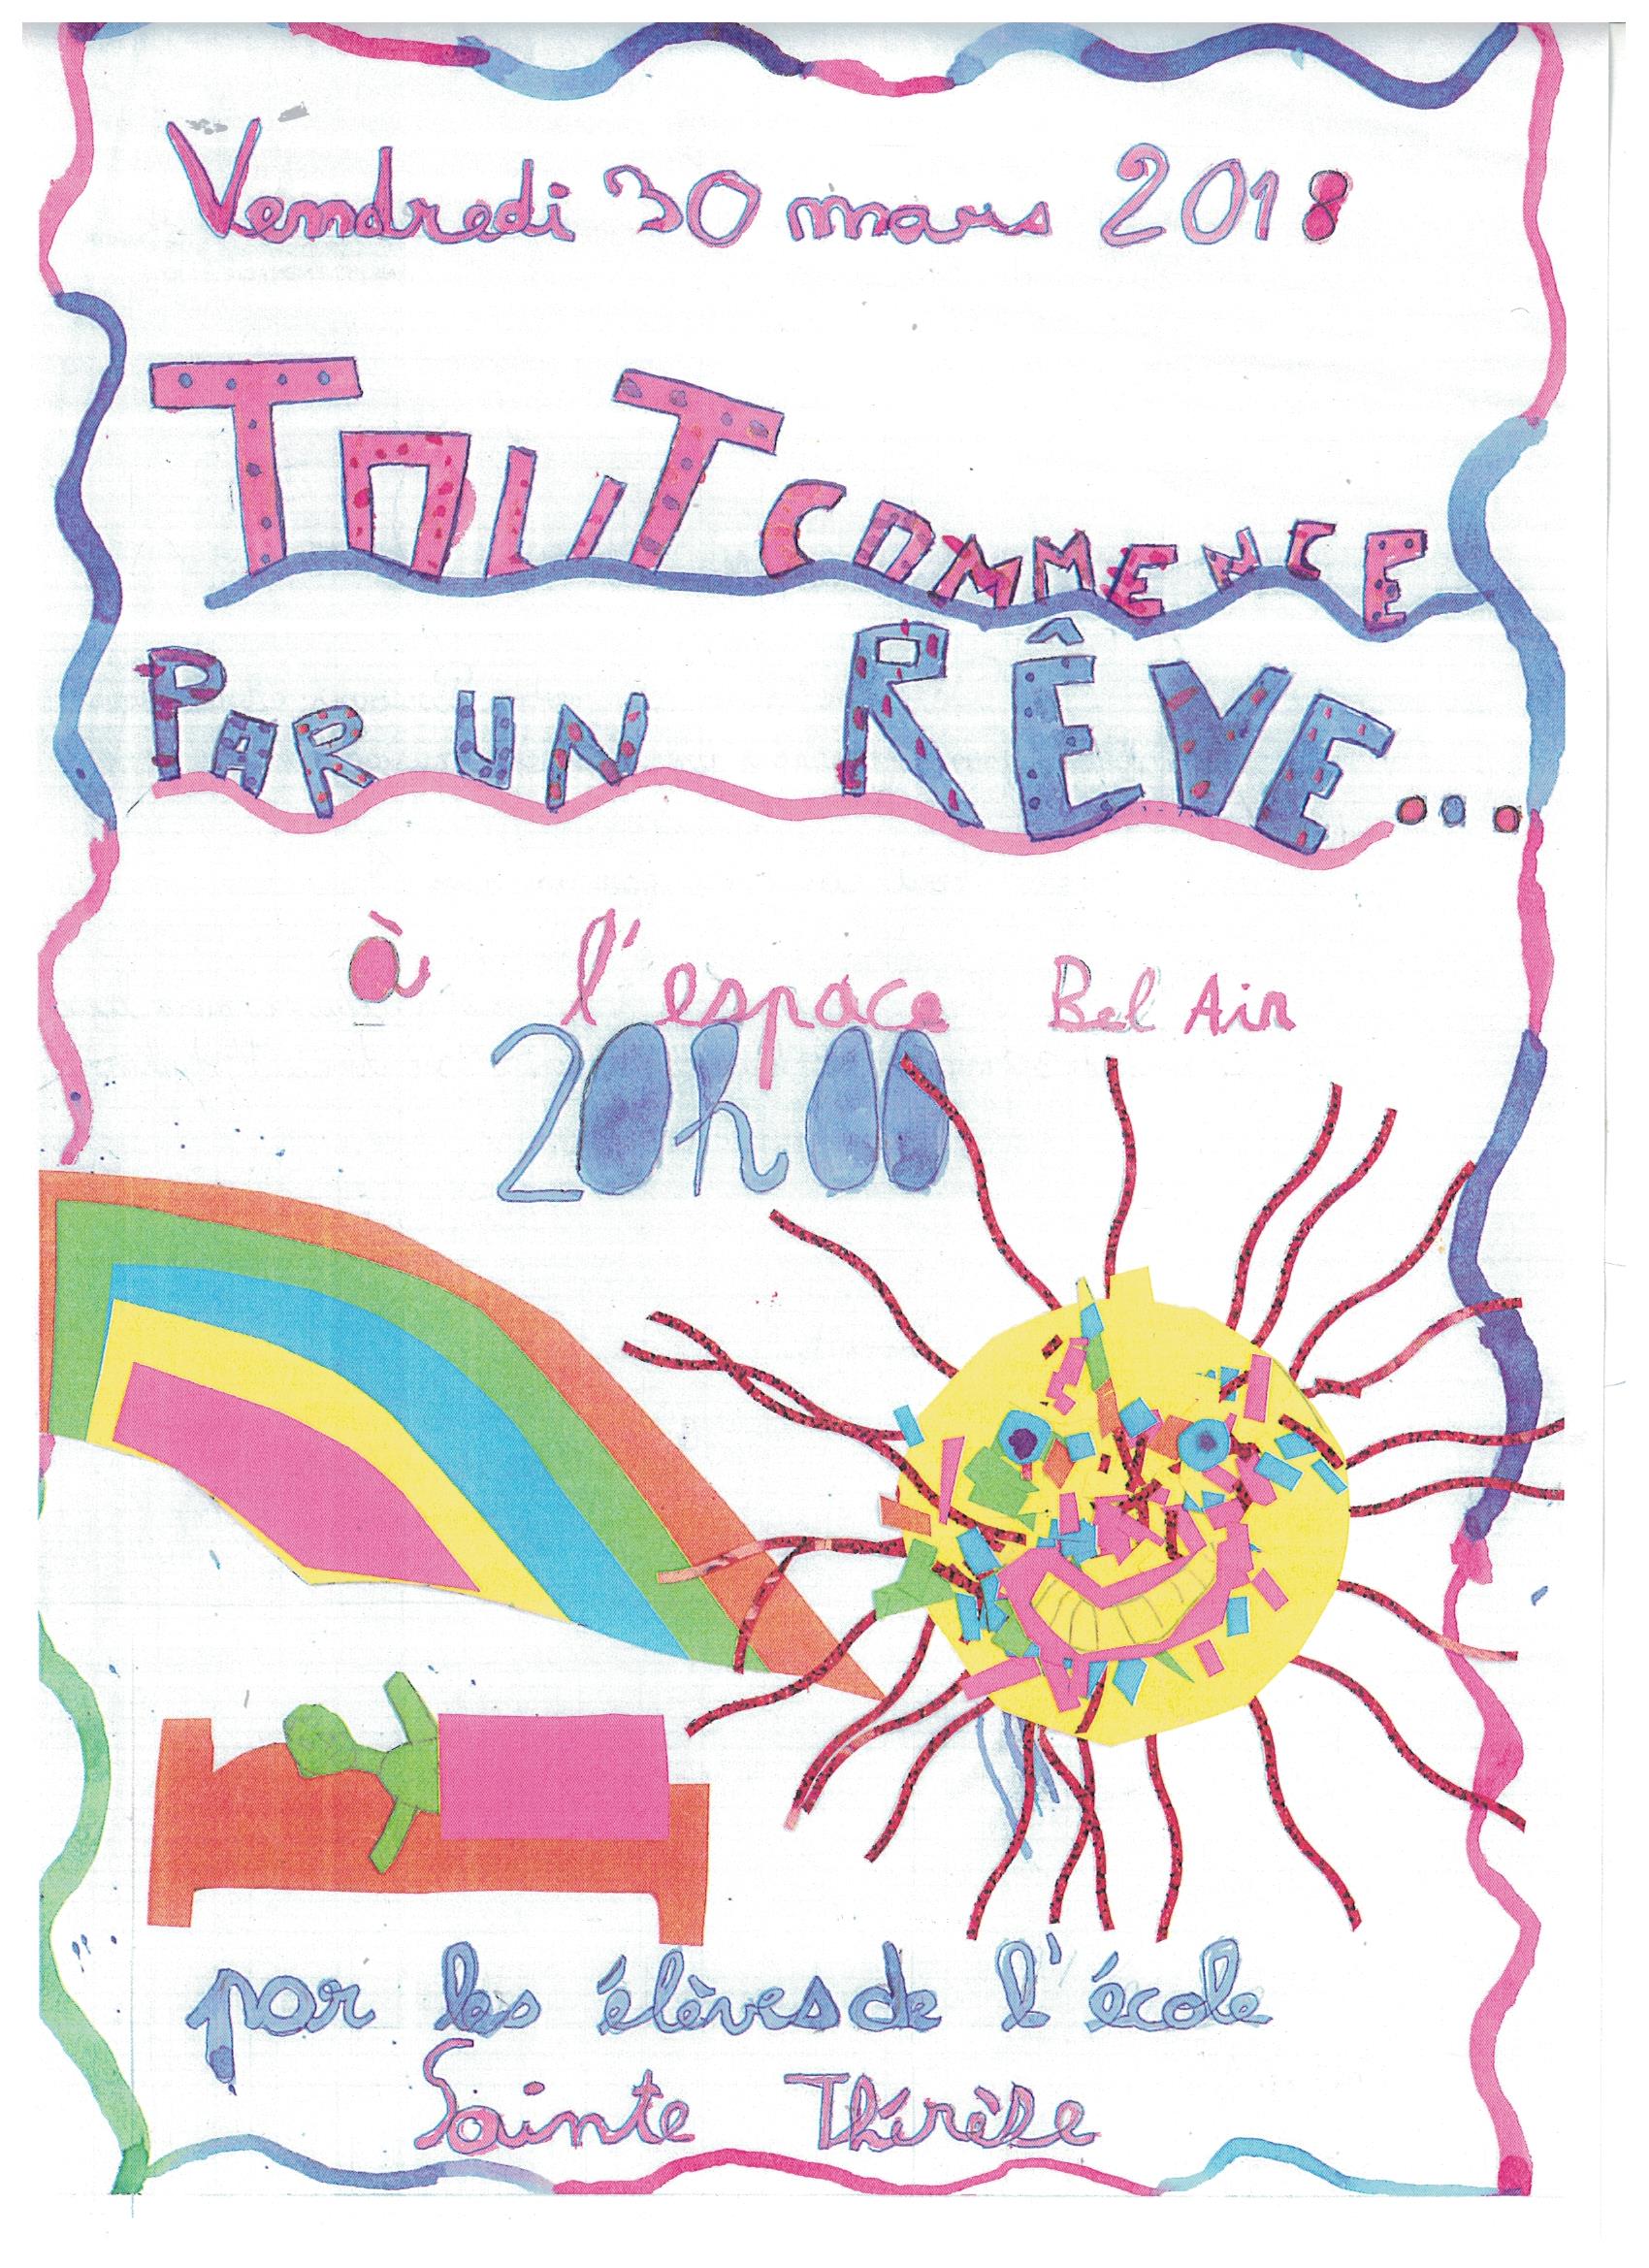 Vendredi 30 mars 2018
TOUT COMMENCE
PAR UN RÊVE...
à l'espace Bel Air
20h00
par les élèves de l'école
Sainte Thérèse